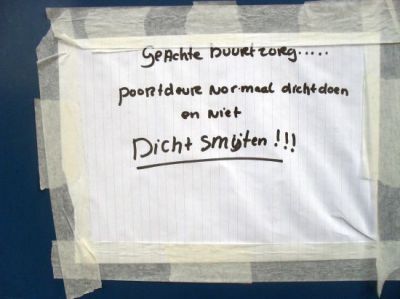 Geachte buurtzorg.....
poortdeure normaal dichtdoen
en niet
Dicht smijten!!!